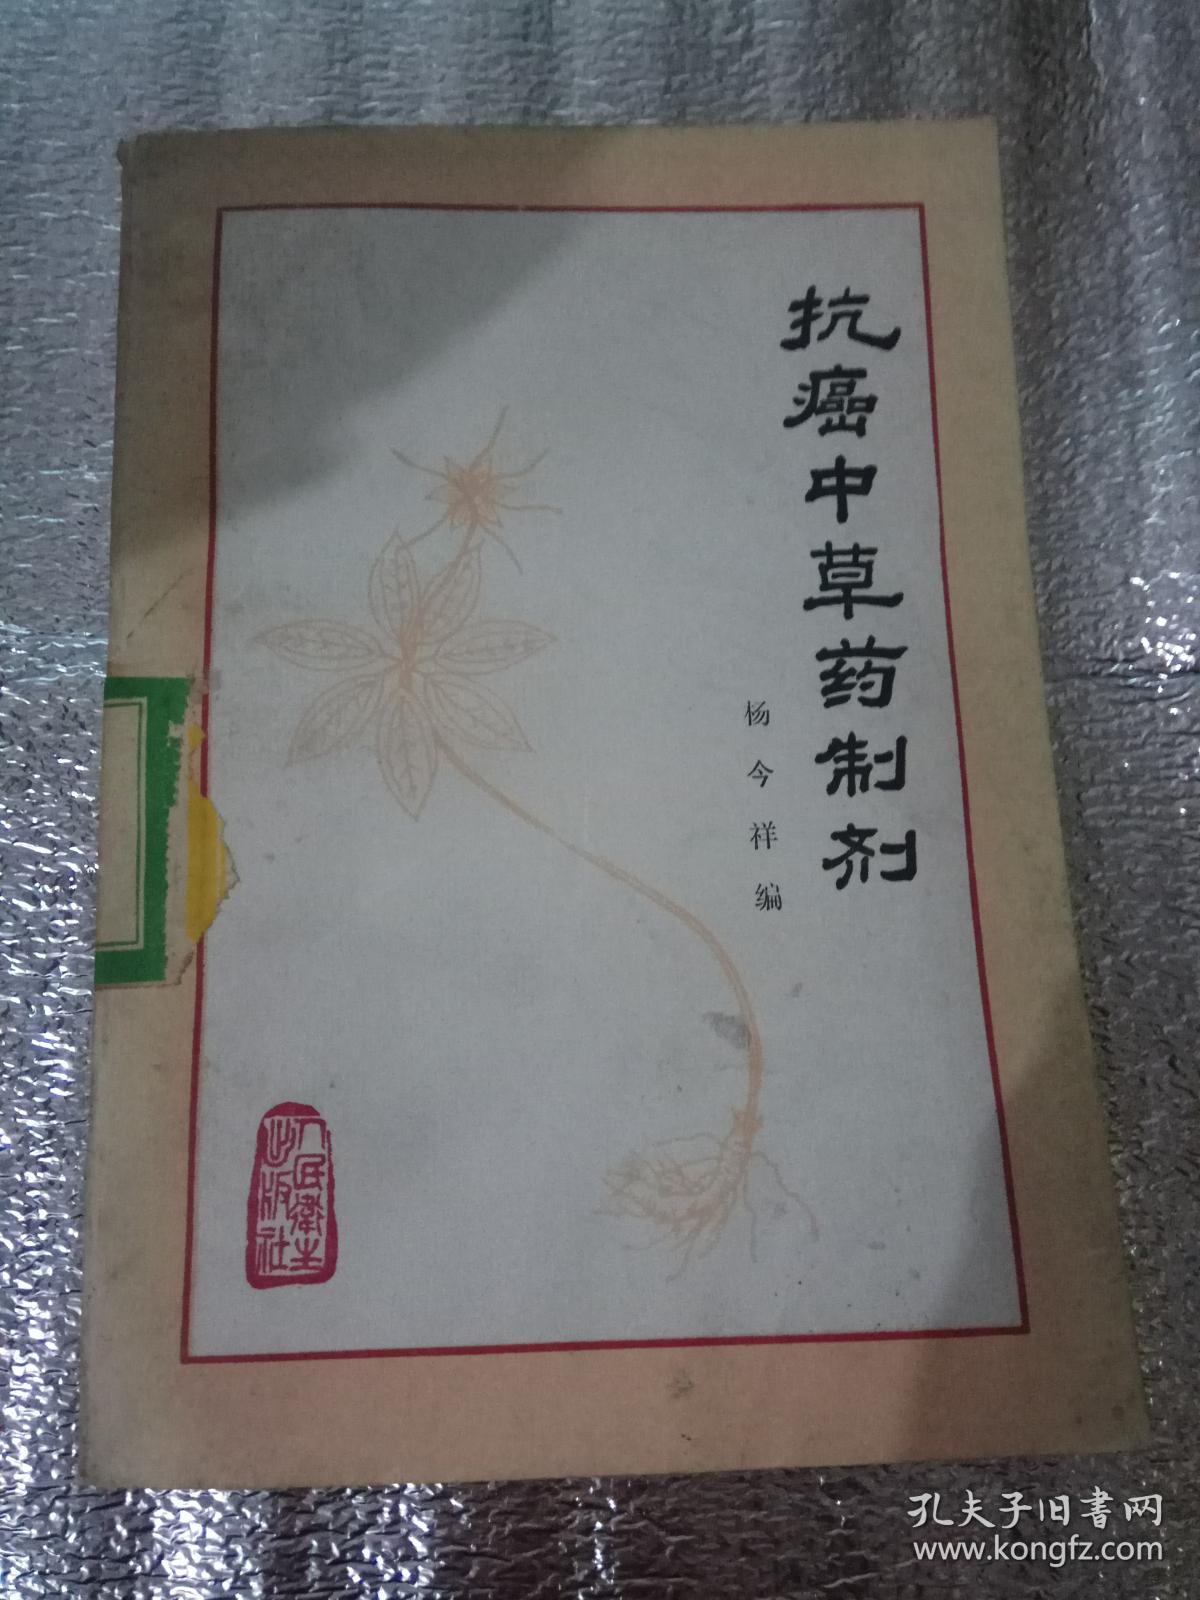 抗癌中草药制剂
杨今祥编
人民衛生
出版社
孔夫子旧書网
www.kongfz.com